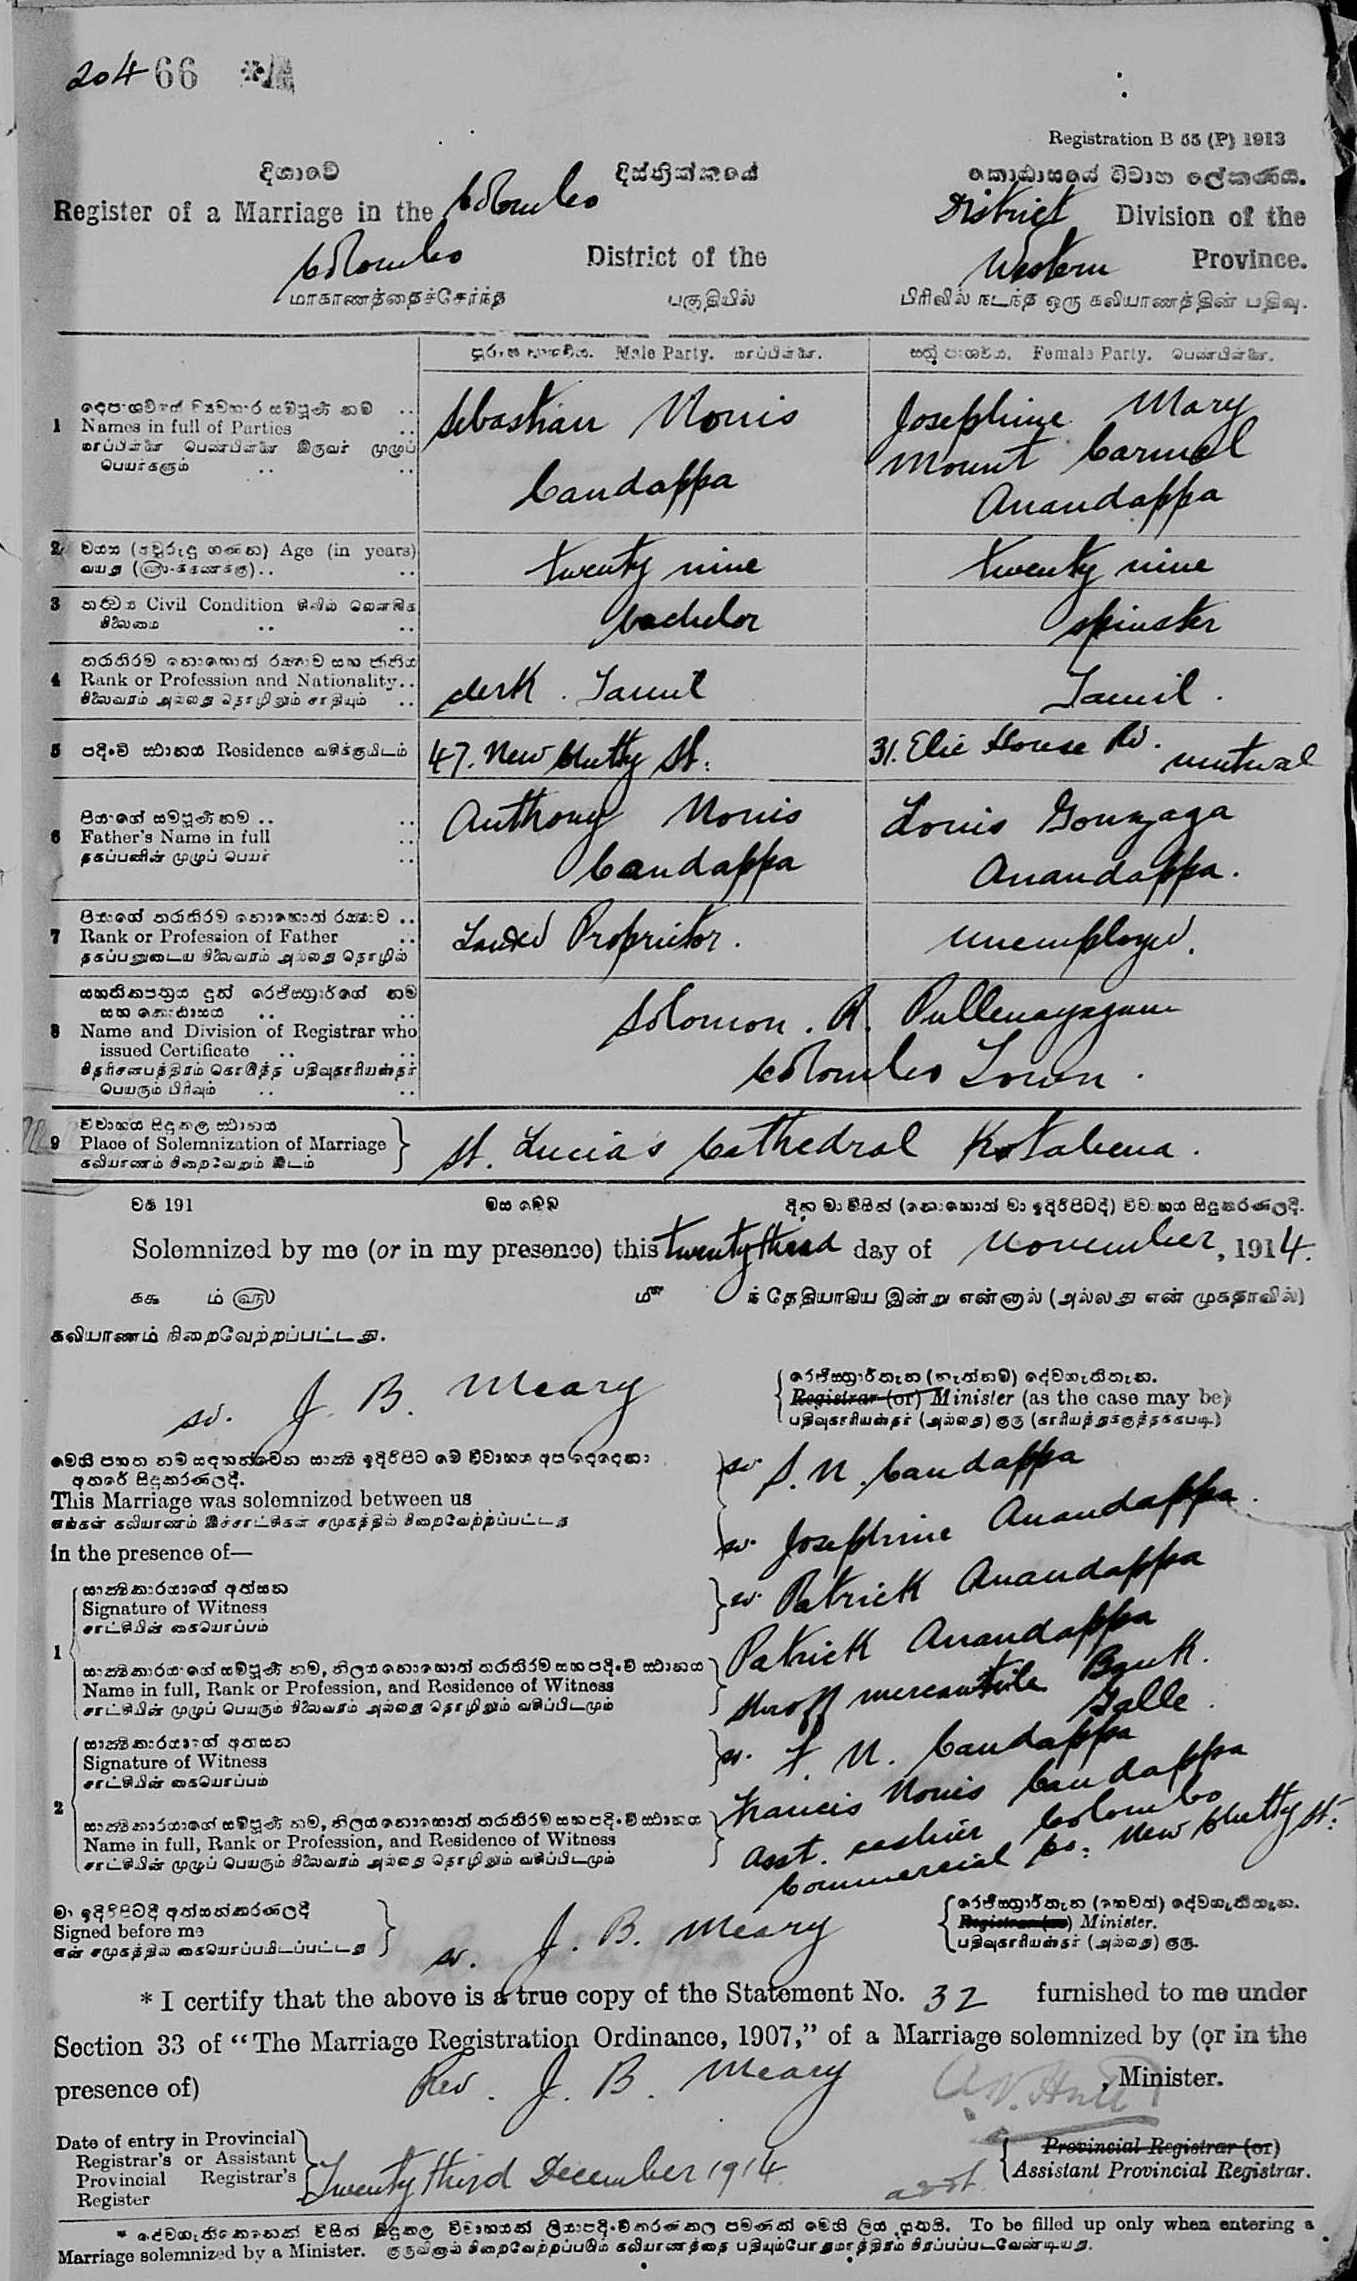 204 66
Registration B 55 (P) 1913
දිශාවේ දිස්ත්‍රික්කයේ කොඨාසයේ විවාහ ලේකණය.
Register of a Marriage in the Colombo District Division of the
Colombo District of the Western Province.
மாகாணத்தைச்சேர்ந்த பகுதியில் பிரிவில் நடந்த ஒரு கலியாணத்தின் பதிவு.
Male Party. மாப்பிள்ளை. Female Party. பெண்பிள்ளை.
1 Names in full of Parties
மாப்பிள்ளை பெண்பிள்ளை இருவர் முழுப் பெயர்களும்
Sebastian Norris Candappa
Josephine Mary Mount Carmel Anandappa
2 වයස (අවුරුදු ගණන) Age (in years)
வயது
twenty nine
twenty nine
3 Civil Condition
bachelor
spinster
4 Rank or Profession and Nationality
நிலைவரம் அல்லது தொழிலும் சாதியும்
clerk . Tamil
Tamil .
5 පදිංචි ස්ථානය Residence வசிக்குமிடம்
47. New Chetty St:
31. Elie House Rd. Mutwal
6 පියාගේ සම්පූර්ණ නම
Father's Name in full
தகப்பனின் முழுப் பெயர்
Anthony Norris Candappa
Louis Gonzaga Anandappa.
7 Rank or Profession of Father
தகப்பனுடைய நிலைவரம் அல்லது தொழில்
Landed Proprietor.
unemployed.
8 Name and Division of Registrar who
issued Certificate
பெயரும் பிரிவும்
Solomon. R. Pullenayagam
Colombo Town.
9 විවාහය සිදුකල ස්ථානය
Place of Solemnization of Marriage
கலியாணம் நிறைவேறும் இடம்
St. Lucia's Cathedral Kotahena.
වර්ෂ 191
Solemnized by me (or in my presence) this twenty third day of November, 1914.
ந் தேதியாகிய இன்று என்னால் (அல்லது என் முகதாவில்)
கலியாணம் நிறைவேற்றப்பட்டது.
sd. J. B. Meary
Registrar (or) Minister (as the case may be)
This Marriage was solemnized between us
எங்கள் கலியாணம் இச்சாட்சிகள் சமுகத்தில் நிறைவேற்றப்பட்டது
in the presence of—
sd. S. N. Candappa
sd. Josephine Anandappa.
1 Signature of Witness
சாட்சியின் கையொப்பம்
sd. Patrick Anandappa
Name in full, Rank or Profession, and Residence of Witness
சாட்சியின் முழுப் பெயரும் நிலைவரம் அல்லது தொழிலும் வசிப்பிடமும்
Patrick Anandappa
Shroff Mercantile Bank.
Galle.
2 Signature of Witness
சாட்சியின் கையொப்பம்
sd. F. N. Candappa
Name in full, Rank or Profession, and Residence of Witness
சாட்சியின் முழுப் பெயரும் நிலைவரம் அல்லது தொழிலும் வசிப்பிடமும்
Francis Norris Candappa
Asst. cashier Colombo
Commercial Co: New Chetty St:
Signed before me
என் சமுகத்தில் கையொப்பமிடப்பட்டது
sd. J. B. Meary
Registrar (or) Minister.
பதிவுகாரியஸ்தர் (அல்லது) குரு.
* I certify that the above is a true copy of the Statement No. 32 furnished to me under
Section 33 of “The Marriage Registration Ordinance, 1907,” of a Marriage solemnized by (or in the
presence of) Rev. J. B. Meary, Minister.
Date of entry in Provincial
Registrar's or Assistant
Provincial Registrar's
Register
Twenty third December 1914.
Provincial Registrar (or)
Asst. Assistant Provincial Registrar.
To be filled up only when entering a
Marriage solemnized by a Minister. குருவினால் நிறைவேற்றப்படும் கலியாணத்தை பதியும்போதுமாத்திரம் நிரப்பப்படவேண்டியது.